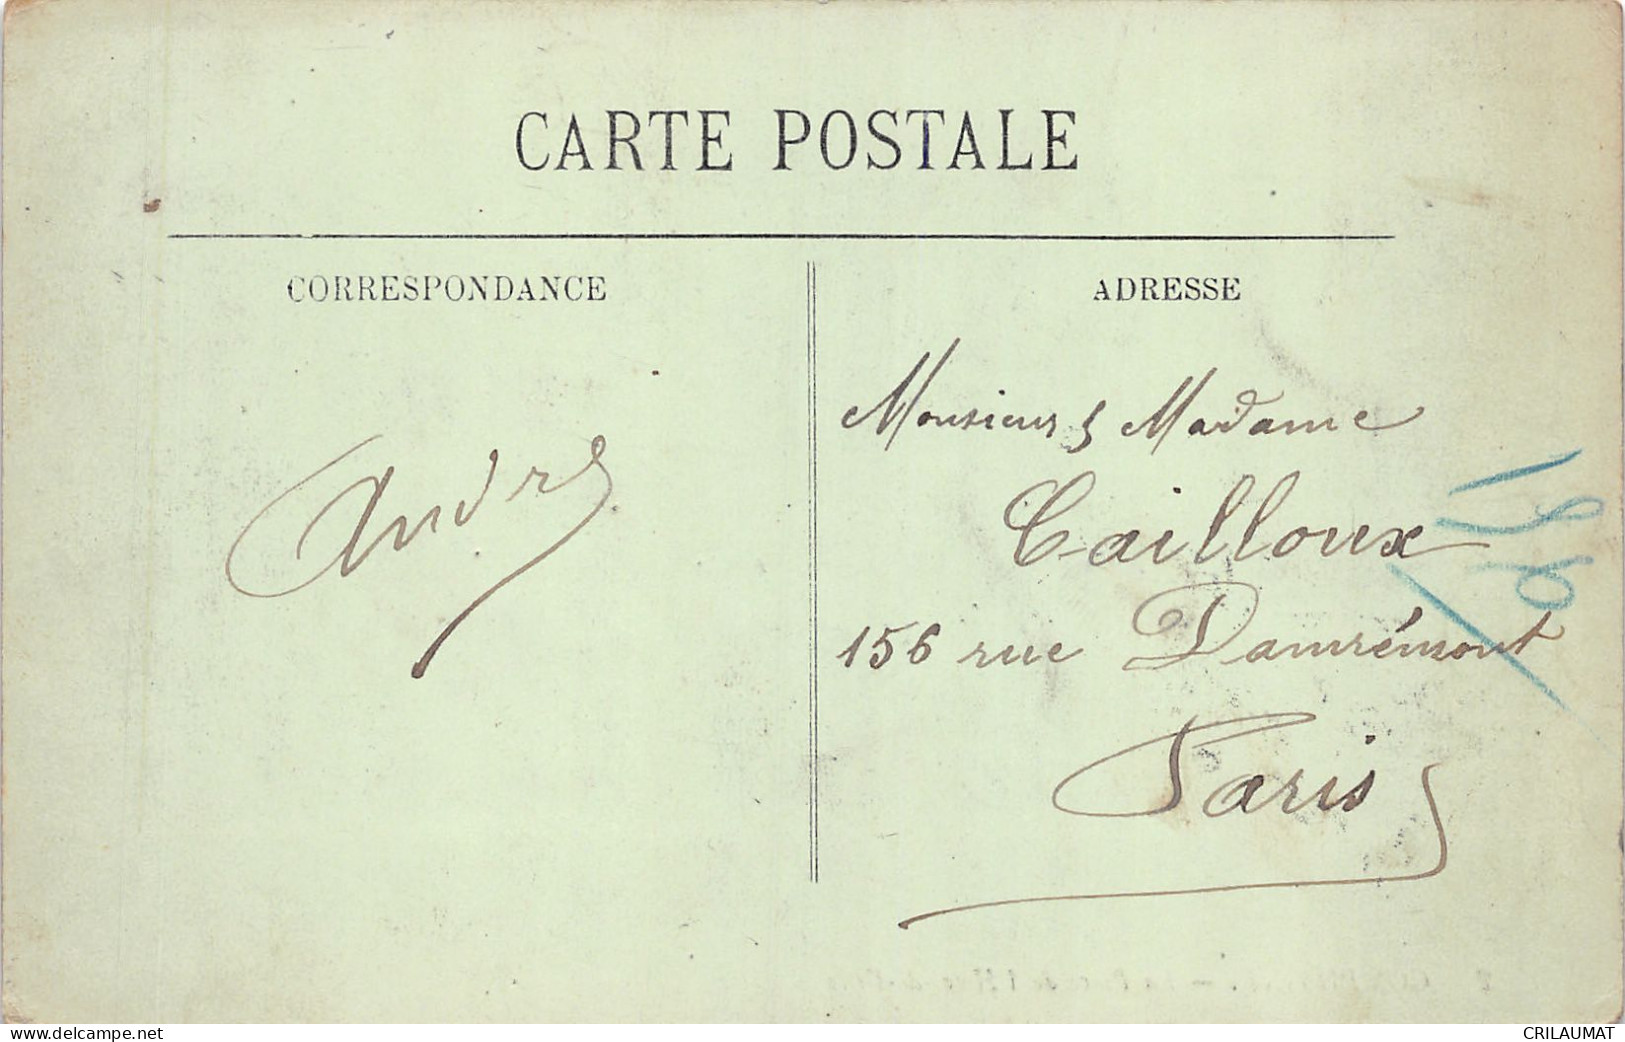 CARTE POSTALE
CORRESPONDANCE
André
ADRESSE
Monsieur & Madame
Cailloux
156 rue Damrémont
Paris
delcampe.net
CRILAUMAT